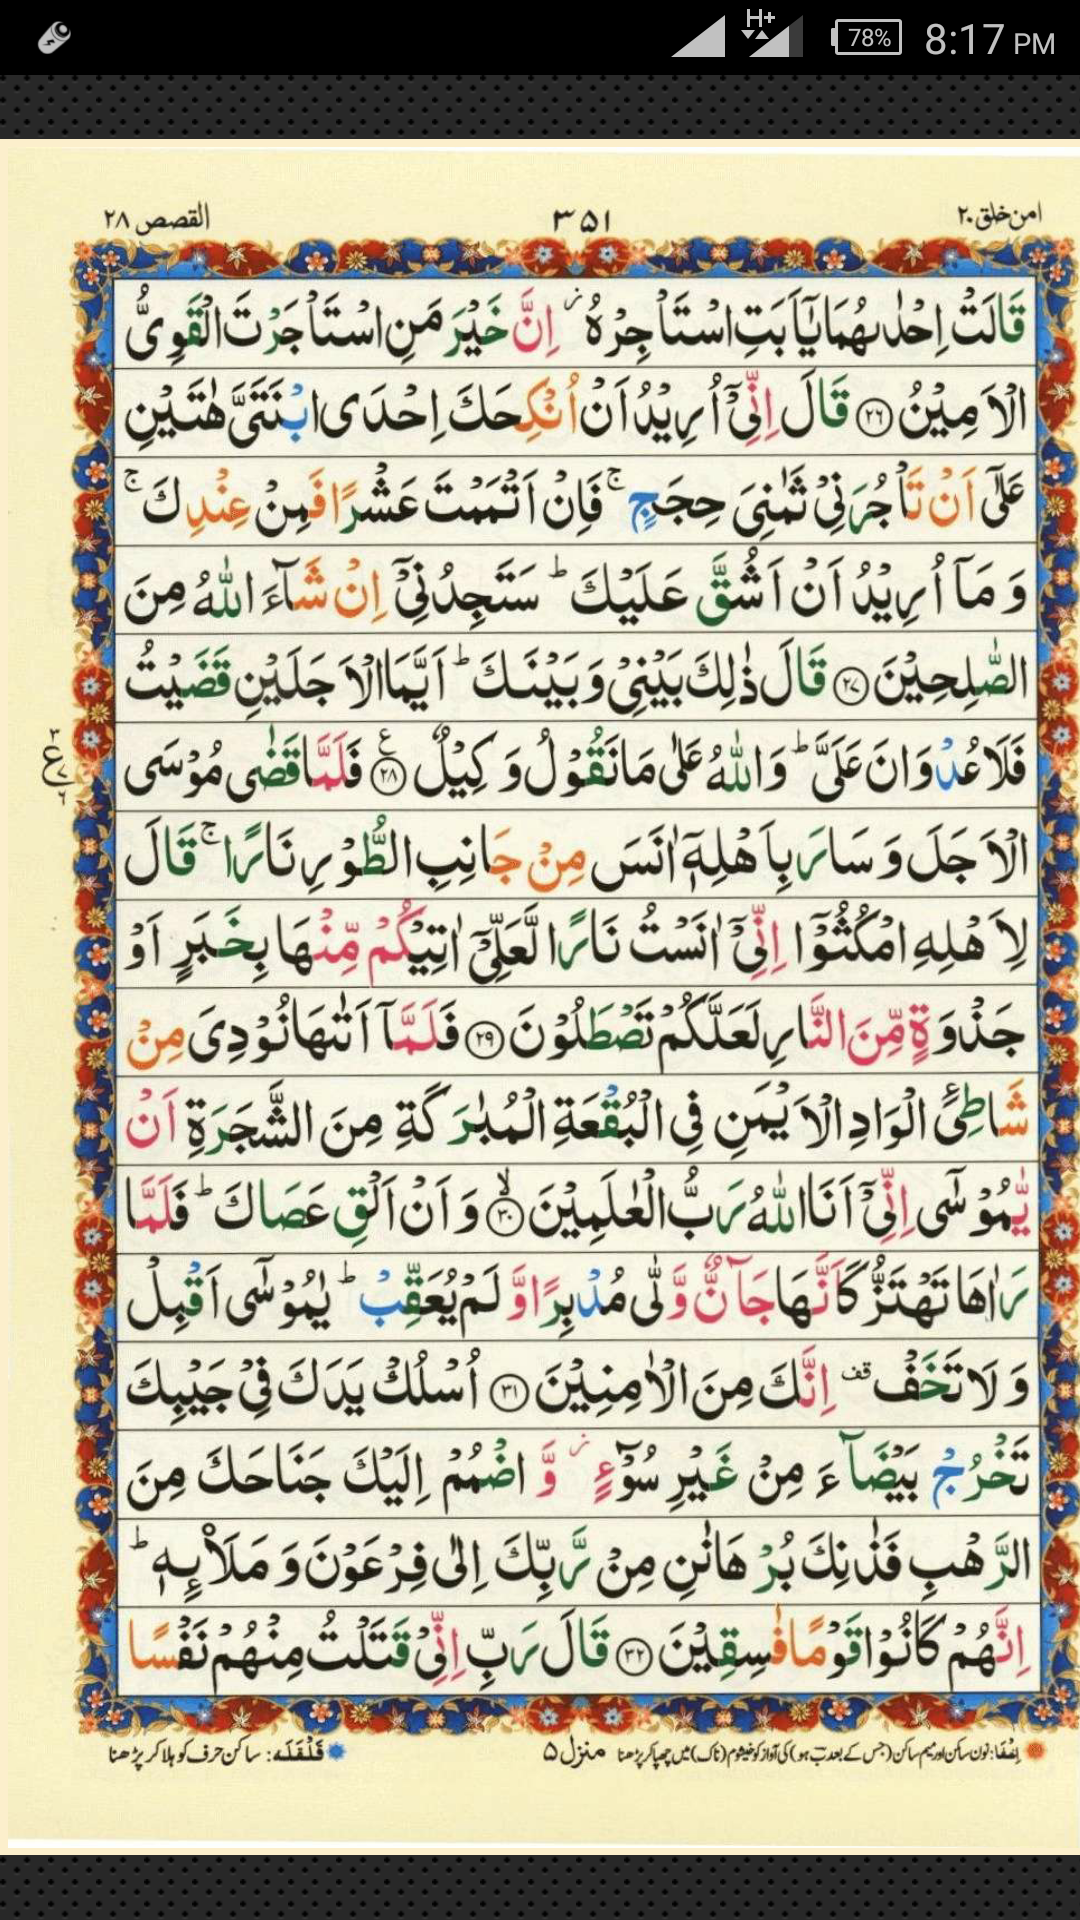 H+
78%
8:17 PM
امن خلق ۲۰
۳۵۱
القصص ۲۸
قَالَتْ اِحْدٰىهُمَا يٰۤاَبَتِ اسْتَاْجِرْهُ ؗ اِنَّ خَيْرَ مَنِ اسْتَاْجَرْتَ الْقَوِيُّ
الْاَمِيْنُ ۝۲۶ قَالَ اِنِّيْۤ اُرِيْدُ اَنْ اُنْكِحَكَ اِحْدَى ابْنَتَيَّ هٰتَيْنِ
عَلٰۤى اَنْ تَاْجُرَنِيْ ثَمٰنِيَ حِجَجٍ ۚ فَاِنْ اَتْمَمْتَ عَشْرًا فَمِنْ عِنْدِكَ ۚ
وَ مَاۤ اُرِيْدُ اَنْ اَشُقَّ عَلَيْكَ ؕ سَتَجِدُنِيْۤ اِنْ شَآءَ اللّٰهُ مِنَ
الصّٰلِحِيْنَ ۝۲۷ قَالَ ذٰلِكَ بَيْنِيْ وَ بَيْنَكَ ؕ اَيَّمَا الْاَجَلَيْنِ قَضَيْتُ
فَلَا عُدْوَانَ عَلَيَّ ؕ وَ اللّٰهُ عَلٰى مَا نَقُوْلُ وَكِيْلٌ ۝۲۸ ع فَلَمَّا قَضٰى مُوْسَى
۳
ع
۷
۶
الْاَجَلَ وَ سَارَ بِاَهْلِهٖۤ اٰنَسَ مِنْ جَانِبِ الطُّوْرِ نَارًا ۚ قَالَ
لِاَهْلِهِ امْكُثُوْۤا اِنِّيْۤ اٰنَسْتُ نَارًا لَّعَلِّيْۤ اٰتِيْكُمْ مِّنْهَا بِخَبَرٍ اَوْ
جَذْوَةٍ مِّنَ النَّارِ لَعَلَّكُمْ تَصْطَلُوْنَ ۝۲۹ فَلَمَّاۤ اَتٰىهَا نُوْدِيَ مِنْ
شَاطِئِ الْوَادِ الْاَيْمَنِ فِي الْبُقْعَةِ الْمُبٰرَكَةِ مِنَ الشَّجَرَةِ اَنْ
يّٰمُوْسٰۤى اِنِّيْۤ اَنَا اللّٰهُ رَبُّ الْعٰلَمِيْنَ ۝۳۰ ۙ وَ اَنْ اَلْقِ عَصَاكَ ؕ فَلَمَّا
رَاٰهَا تَهْتَزُّ كَاَنَّهَا جَآنٌّ وَّلّٰى مُدْبِرًا وَّ لَمْ يُعَقِّبْ ؕ يٰمُوْسٰۤى اَقْبِلْ
وَ لَا تَخَفْ قف اِنَّكَ مِنَ الْاٰمِنِيْنَ ۝۳۱ اُسْلُكْ يَدَكَ فِيْ جَيْبِكَ
تَخْرُجْ بَيْضَآءَ مِنْ غَيْرِ سُوْٓءٍ ؗ وَّ اضْمُمْ اِلَيْكَ جَنَاحَكَ مِنَ
الرَّهْبِ فَذٰنِكَ بُرْهَانٰنِ مِنْ رَّبِّكَ اِلٰى فِرْعَوْنَ وَ مَلَا۟ئِهٖ ؕ
اِنَّهُمْ كَانُوْا قَوْمًا فٰسِقِيْنَ ۝۳۲ قَالَ رَبِّ اِنِّيْ قَتَلْتُ مِنْهُمْ نَفْسًا
اِخفَا: نون ساکن اور میم ساکن (جس کے بعد ب ہو) کی آواز کو خیشوم (ناک) میں چھپا کر پڑھنا
منزل ۵
قَلْقَلَه: ساکن حرف کو ہلا کر پڑھنا